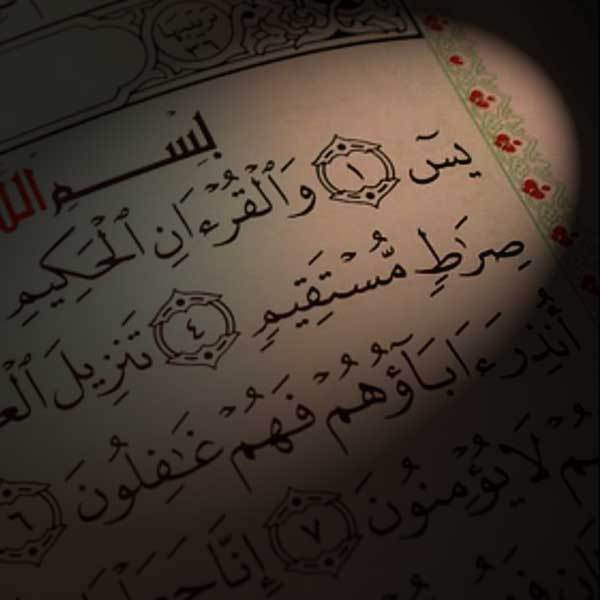 بِسْمِ ٱللَّ
يسٓ ١ وَٱلْقُرْءَانِ ٱلْحَكِيمِ
صِرَٰطٍ مُّسْتَقِيمٍ ٤ تَنزِيلَ ٱلْع
أُنذِرَ ءَابَآؤُهُمْ فَهُمْ غَٰفِلُونَ ٦
هُمْ لَا يُؤْمِنُونَ ٧ إِنَّا جَعَلْنَا